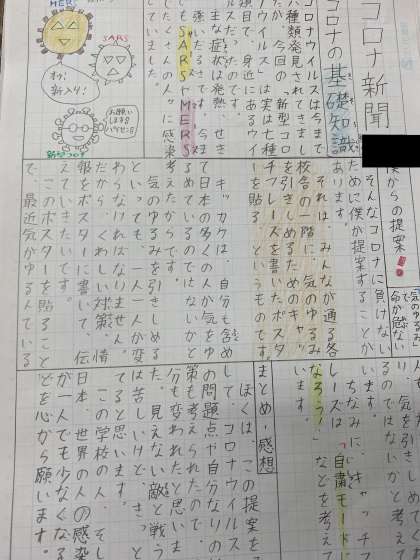 コロナ新聞
コロナの基礎知識
コロナウイルスは今まで
六種類発見されてきまし
たが、今回の「新型コロ
ナウイルス」は実は七種
類目で、身近にあるウイ
ルスだったのです。
主な症状は発熱、せき
強いだるさです。今は
SARSやMERS
でたくさんの人々に感染
していました。
MERS
SARS
おっ!
新入り!
お願い
します!
パクセン!
新型コロナ
僕からの提案!
そんなコロナに負けない
ために僕が提案することが
あります。
それは、みんなが通る各
校舎の一階に、気のゆるみ
を引きしめるためのキャッ
チフレーズを書いたポスタ
ーを貼る、というものです。
キッカケは、自分も含め
て日本の多くの人が気をゆ
るめているのではないかと
考えたからです。
気のゆるみを引きしめる
といっても、一人一人が変
わらなければなりません。
だから、くわしい対策、情
報をポスターに書いて、伝
えていきたいです。
このポスターを貼ること
で、最近気がゆるんでいる
命が危ない
り、気を引きし
るのではないかと考え
います。
ちなみに、キャッチフ
レーズは、「自粛モード
なろう!」などを考えて
います。
まとめ・感想
ぼくは、この提案を
して、コロナウイルス
の問題点や自分なりの
策も考えられたので、
分も変われたと思いま
た。見えない敵と戦う
は苦しいけど、きっと
てると思います。
この学校の人、そし
日本、世界の人の感染
が一人でも少なくなる
とを心から願います。